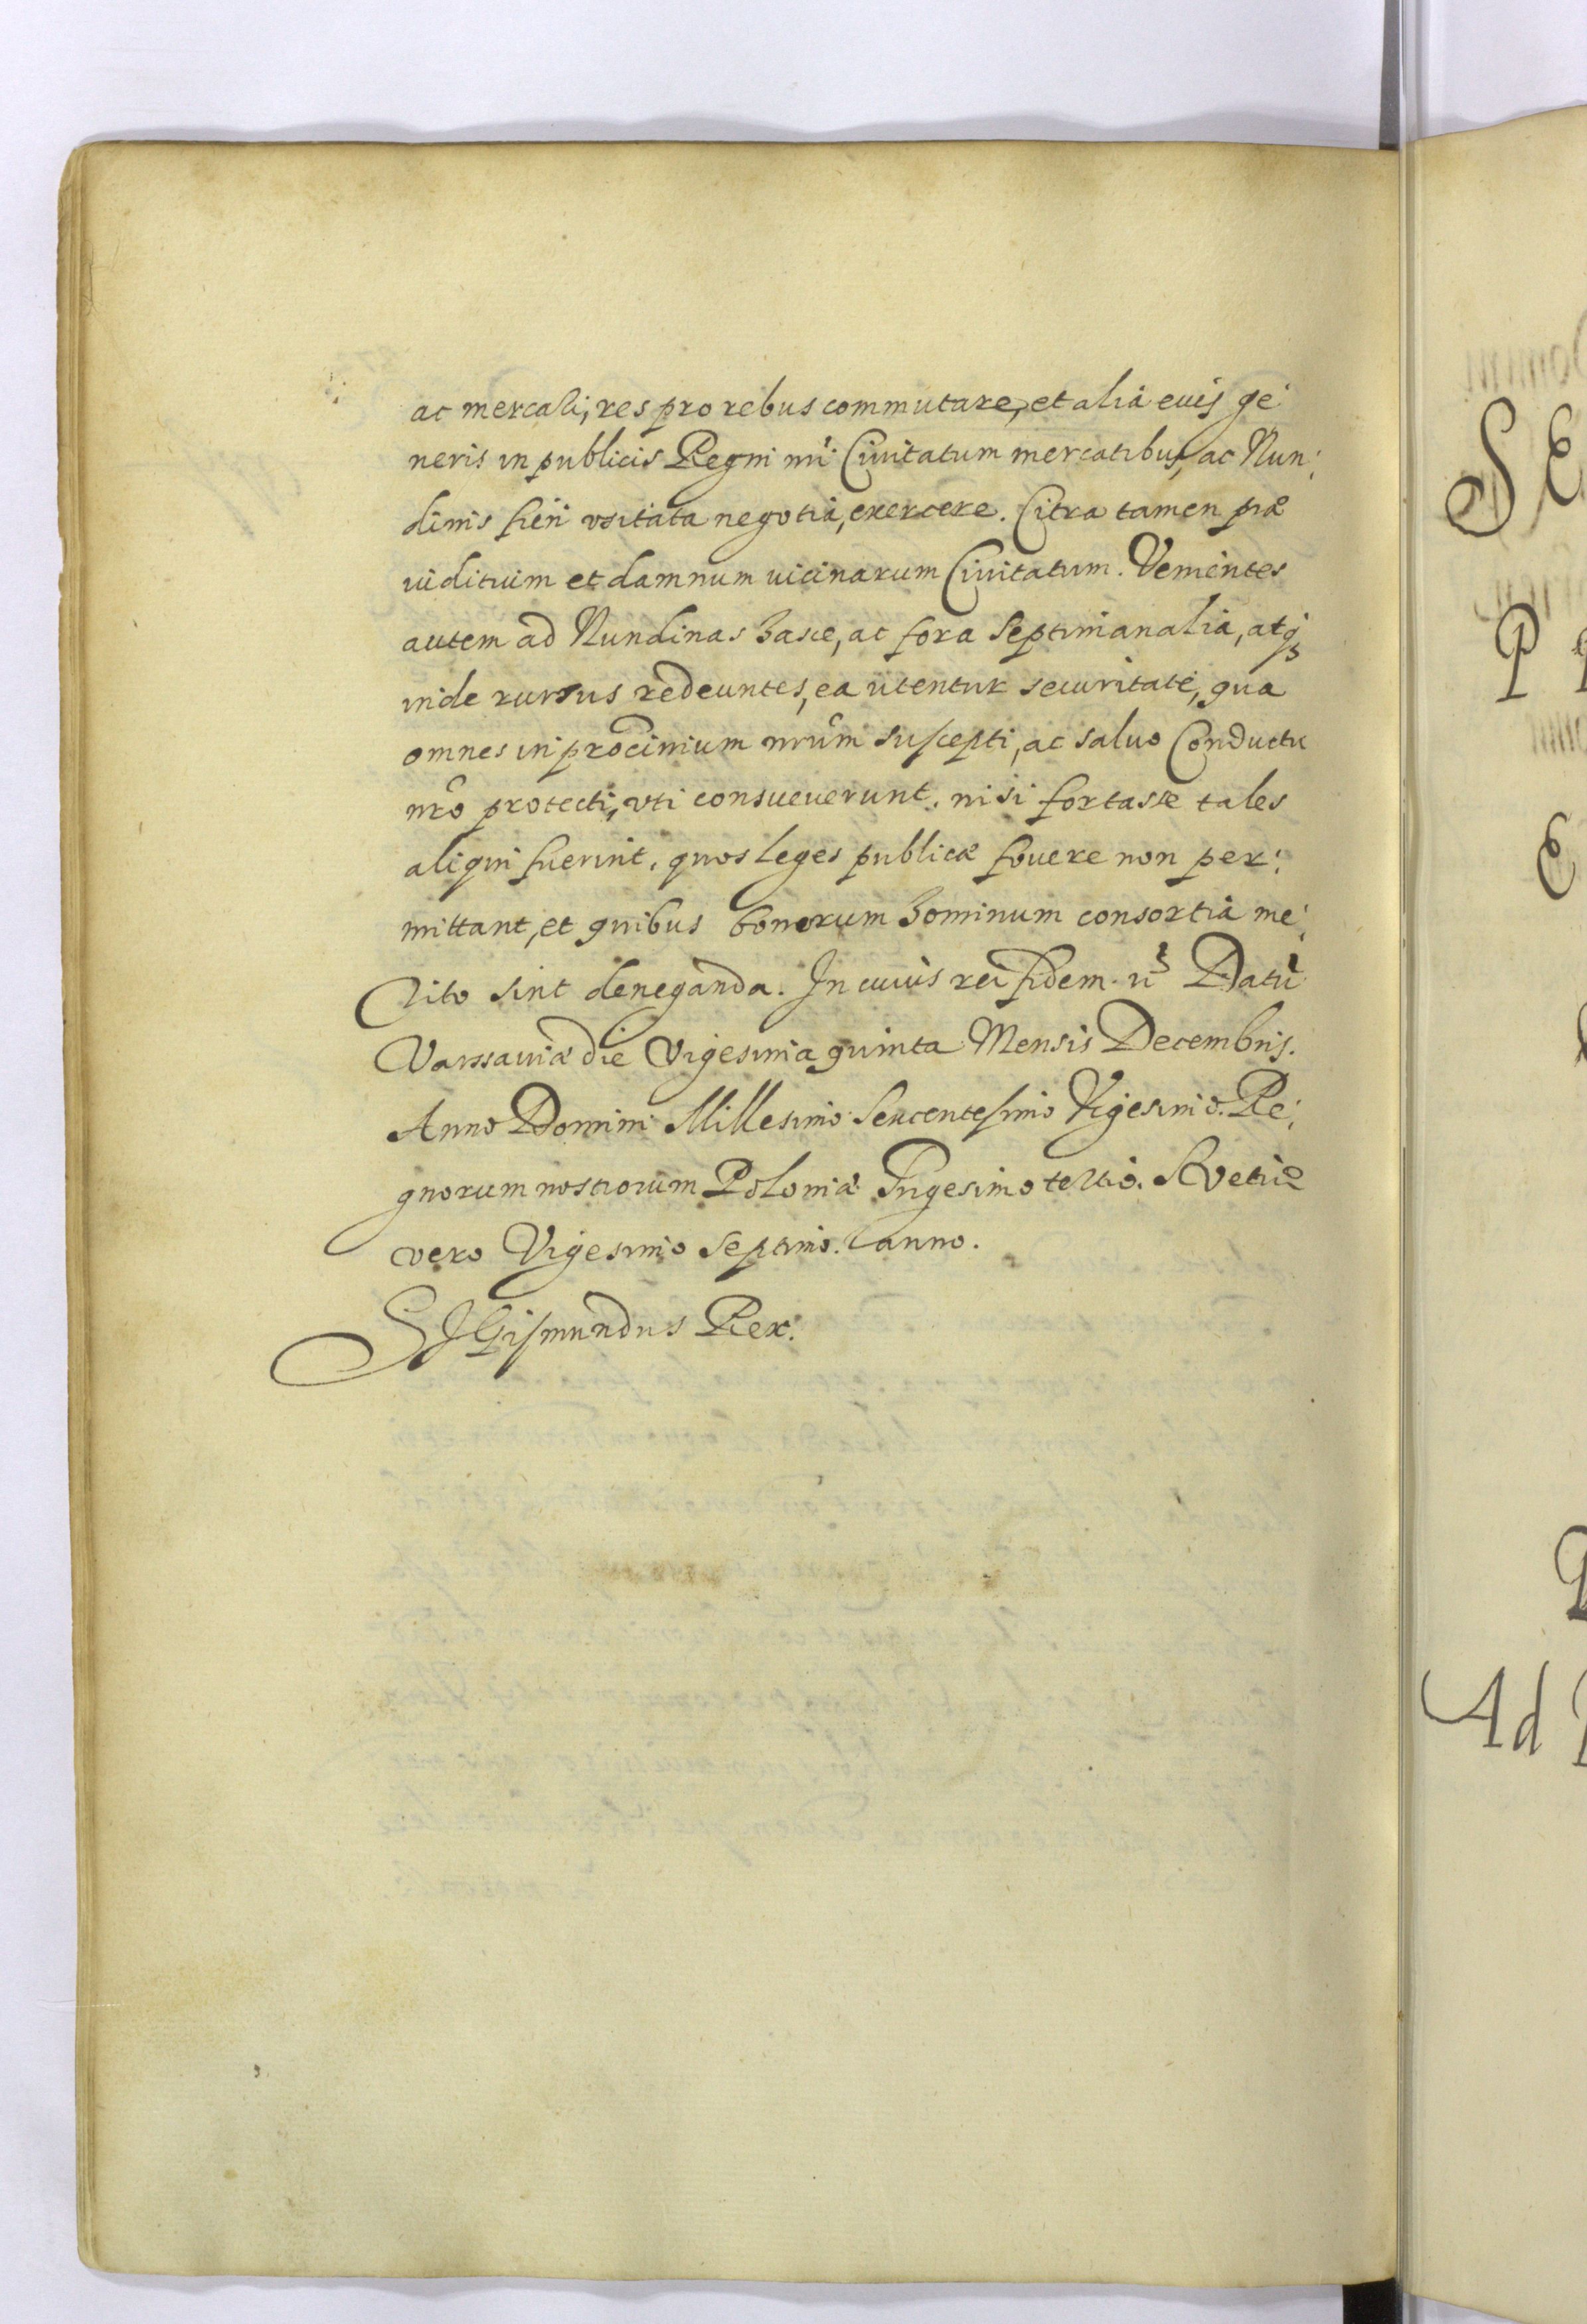 ac mercali, res pro rebus commutare, et alia euis ge:
neris in publicis Regni nri Ciuitatum mercatibus, ac Nun:
dinis fieri vsitata negotia, exercere. Citra tamen præ
iudituim et damnum uicinarum Ciuitatum. Venientes
autem ad Nundinas hasce, ac fora septimanalia, atq3
inde rursus redeuntes, ea utentur securitate, qua
omnes in procinium nrum suscepti, ac saluo Conductu
nro protecti, vti consueuerunt, nisi fortasse tales
aliqui fuerint, quos leges publicæ fouere non per:
mittant, et quibus bonorum hominum consortia me:
rito sint deneganda. In cuius rei fidem. Datu
Varssauiæ die Vigesima quinta Mensis Decembris.
Anno Domini Millesimo Sexcentesimo Vigesimo. Re:
gnorum nostrorum Poloniæ Trigesimo tertio. SVetiæ
vero Vigesimo Septimo. anno.
SIGismundus Rex.
SE
P
E
Ad